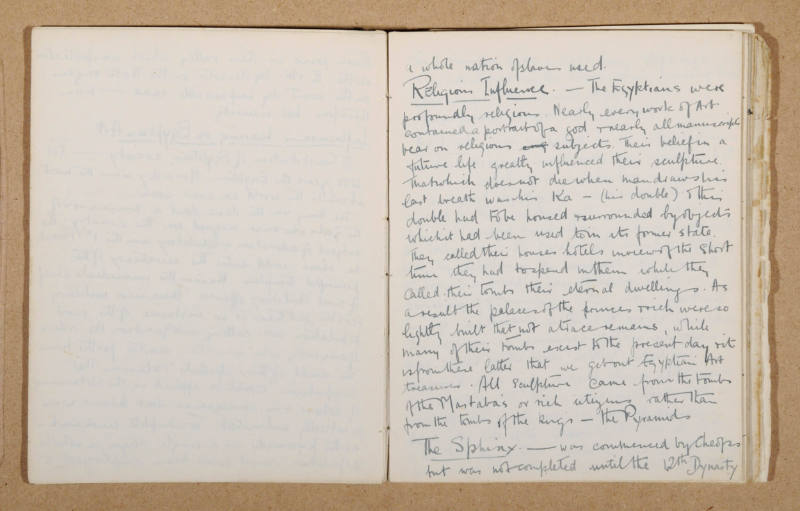 a whole nation of slaves used.
Religious Influence. — The Egyptians were
profoundly religious. Nearly every work of Art
contained a portrait of a god & nearly all manuscripts
bear on religious subjects. Their belief in a
future life greatly influenced their sculpture.
That which does not die when man draws his
last breath was his Ka — (his double) & this
double had to be housed & surrounded by objects
which it had been used to in its former state.
They called their houses hotels in view of the short
time they had to spend in them while they
called their tombs their eternal dwellings. As
a result the palaces of the princes & rich were so
lightly built that not a trace remains, while
many of their tombs exist to the present day & it
is from these latter that we get out Egyptian Art
treasures. All Sculpture came from the tombs
of the Mastabas or rich citizens rather than
from the tombs of the kings — the Pyramids
The Sphinx. — was commenced by Cheops
but was not completed until the 12th Dynasty